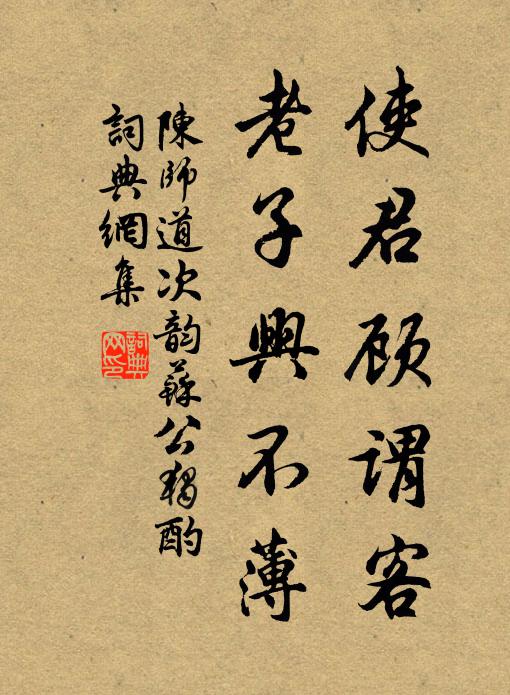 使君顾謂客
老子興不薄
陳師道次韵蘇公獨酌
詞典網集
詞典網印